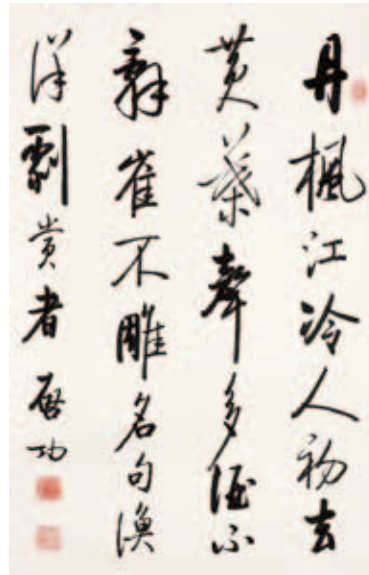 丹楓江冷人初去
黄葉聲多酒不
辭崔不雕名句漁
洋劇賞者 啓功